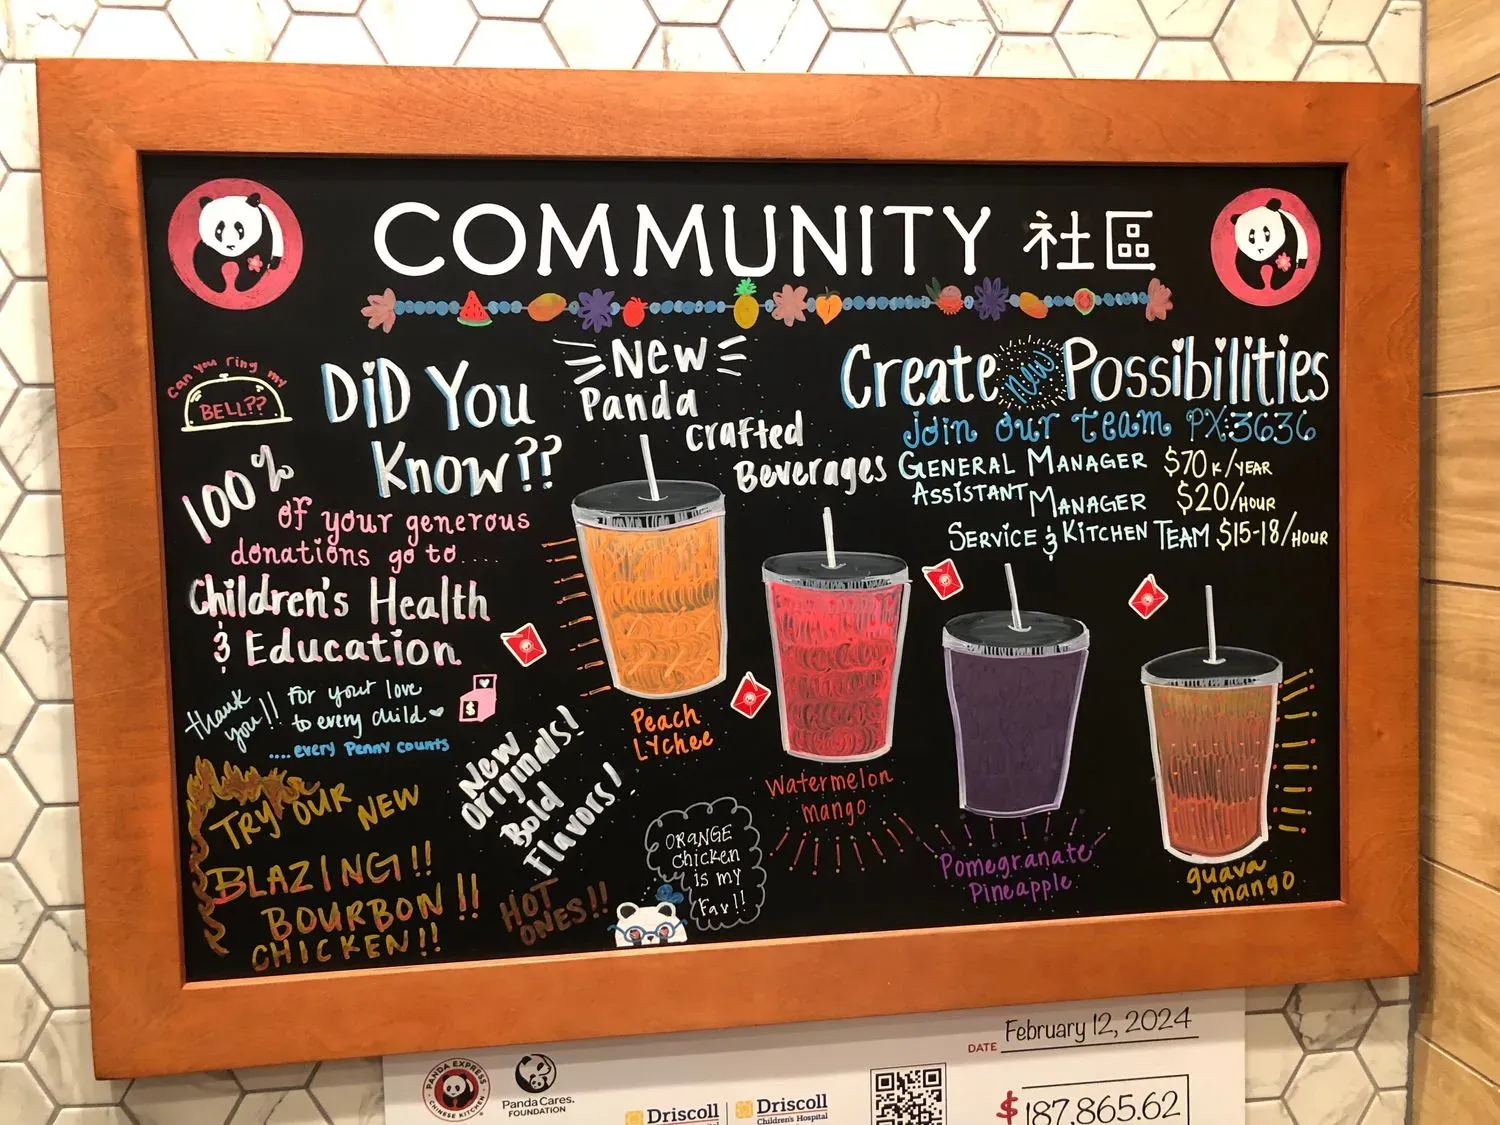 COMMUNITY 社區
can you ring my
BELL??
DiD You
Know??
100%
of your generous
donations go to....
Children's Health
& Education
thank
you!!
For your love
to every child
....every Penny counts
$
TRY OUR NEW
BLAZING!!
BOURBON!!
CHICKEN!!
New
Originals!
Bold
Flavors!
HOT
ONES!!
ORANGE
chicken
is my
Fav!!
New
Panda
crafted
Beverages
Peach
LYchee
Watermelon
mango
Pomegranate
Pineapple
guava
mango
Create new Possibilities
join our team PX3636
GENERAL MANAGER $70K/YEAR
ASSISTANT MANAGER $20/HOUR
SERVICE & KITCHEN TEAM $15-18/HOUR
PANDA EXPRESS
CHINESE KITCHEN
Panda Cares.
FOUNDATION
Driscoll
Driscoll
Children's Hospital
DATE February 12, 2024
$ 187,865.62